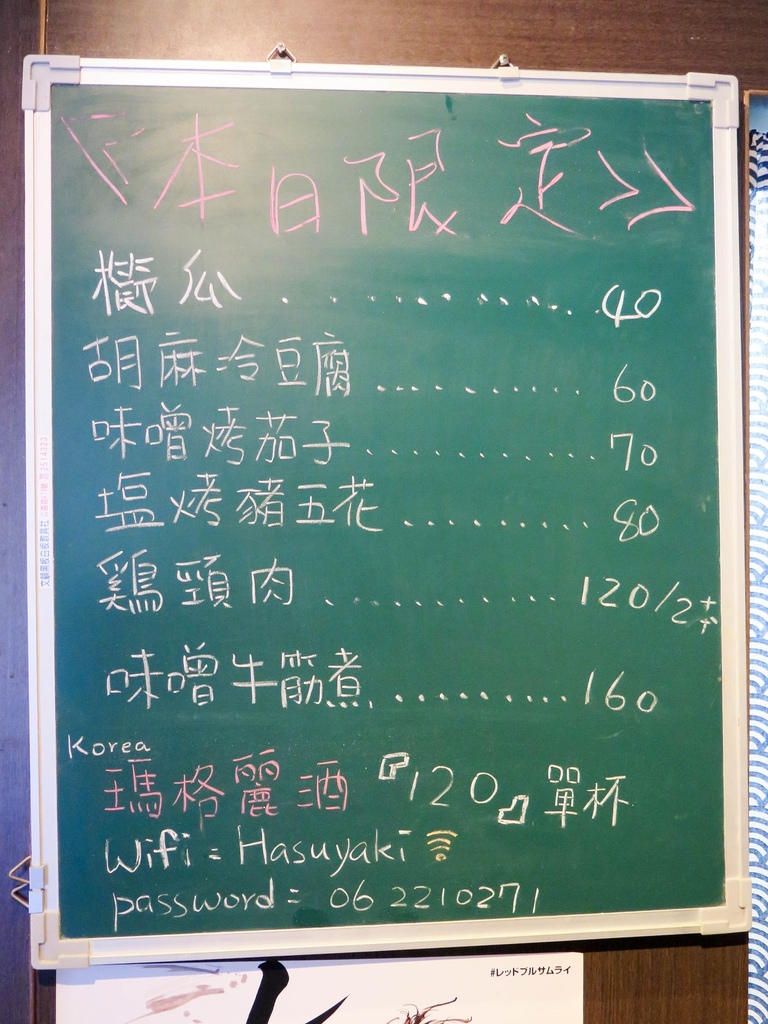 《本日限定》
胡麻冷豆腐 .......... 60
味噌烤茄子 .......... 70
塩烤豬五花 .......... 80
鶏頸肉 .......... 120/2串
味噌牛筋煮 .......... 160
Korea
瑪格麗酒『120』單杯
Wifi = Hasuyaki
password = 06 2210271
#レッドブルサムライ